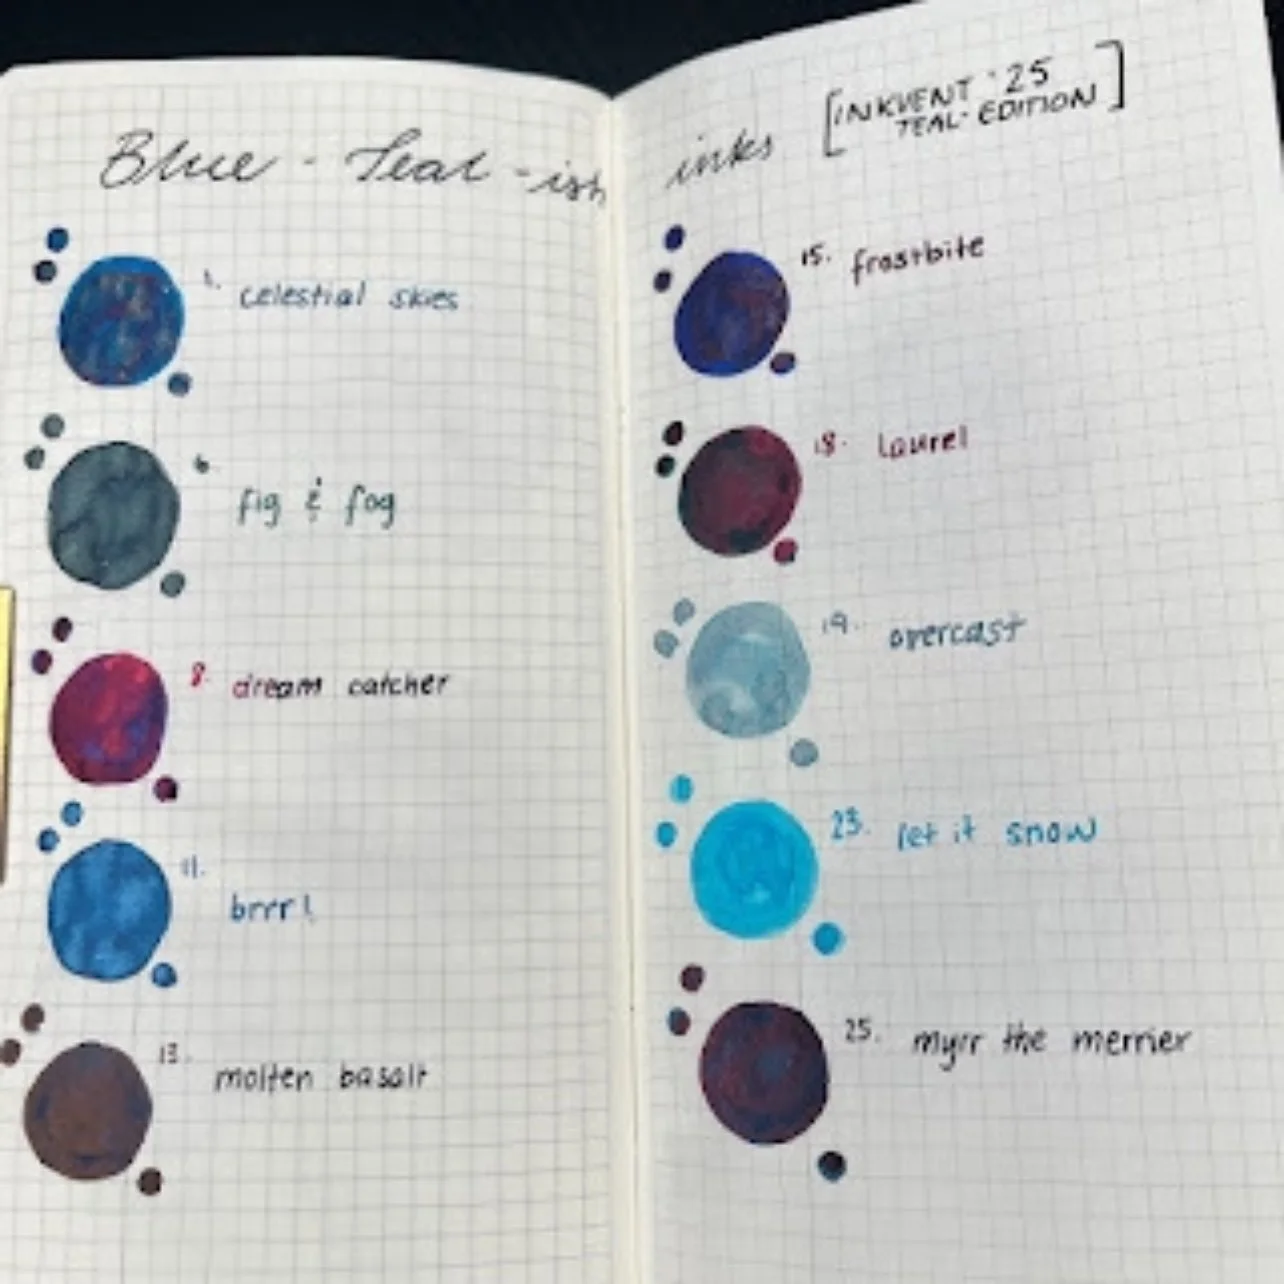 Blue - Teal - ish inks
[INKVENT '25
TEAL-EDITION]
1. celestial skies
6. fig & fog
8. dream catcher
11. brrr!
13. molten basalt
15. frostbite
18. laurel
19. overcast
23. let it snow
25. myrr the merrier